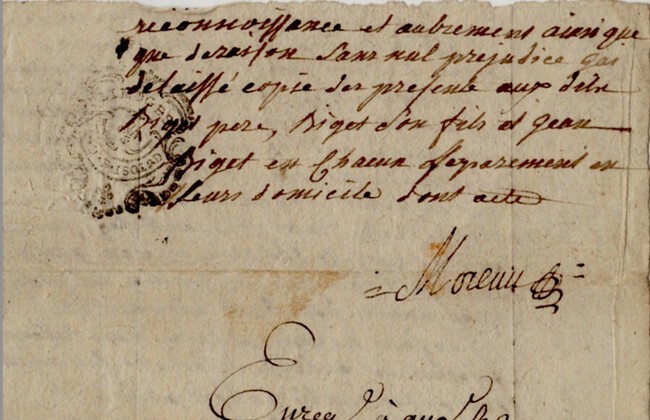 reconnoissance et autrement ainsi que
que de raison sans nul prejudice jai
delaissé copie des presente aux dits
Biget pere, Biget son fils et jean
Biget en chacun separement en
leurs domicile dont acte
Moreau
Enreg à